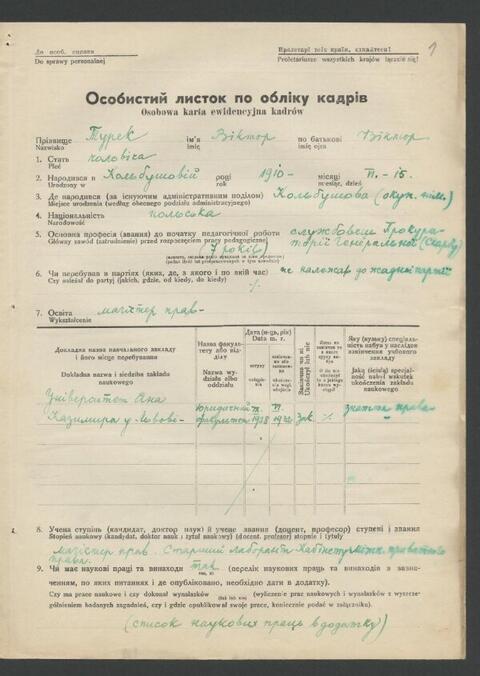 До особ. справи
Do sprawy personalnej
Пролетарі всіх країн, єднайтеся!
Proletariusze wszystkich krajów łączcie się!
1
Особистий листок по обліку кадрів
Osobowa karta ewidencyjna kadrów
Прізвище Турек ім'я Віктор по батькові Віктор
Nazwisko imię imię ojca
1. Стать чоловіча
Płeć
2. Народився в Кольбушовій році 1910 місяці VI - 15.
Urodzony w roku miesiąc, dzień
3. Де народився (за існуючим адміністративним поділом) Кольбушова (окуп. нім.)
Miejsce urodzenia (według obecnego podziału administracyjnego)
4. Національність польська
Narodowość
5. Основна професія (звання) до початку педагогічної роботи службовець Прокура-
Główny zawód (zatrudnienie) przed rozpoczęciem pracy pedagogicznej торії Генеральної (Скарбу)
(7 років)
6. Чи перебував в партіях (яких, де, з якого і по який час) не належав до жадної партії
Czy należał do partyj (jakich, gdzie, od kiedy, do kiedy)
7. Освіта магістер прав-
Wykształcenie
Докладна назва навчального закладу і його місце перебування
Dokładna nazwa i siedziba zakładu naukowego
Назва факультету або відділу
Nazwa wydziału albo oddziału
Дата (м-ць, рік)
Data m. r.
вступу
Закінчив чи ні
Ukończył lub nie
Яку (вузьку) спеціальність набув у наслідок закінчення учбового закладу
Jaką (ścisłą) specjalność nabył wskutek ukończenia zakładu naukowego
Університет Яна Казимира у Львові
Юридичний факультет
VI. 1932
зак.
%
знавця права
8. Учена ступінь (кандидат, доктор наук) й учене звання (доцент, професор) ступені і звання
Stopień naukowy (kandydat, doktor nauk) i tytuł naukowy (docent, profesor) stopnie i tytuły
магістер прав. Старший лаборант Кабінету міжн. приватного
права.
9. Чи має наукові праці та винаходи так (перелік наукових праць та винаходів з зазна-
ченням, по яких питаннях і де опубліковано, необхідно дати в додатку).
Czy ma prace naukowe i czy dokonał wynalazków (tak lub nie) (wyliczenie prac naukowych i wynalazków z wyszcze-
gólnieniem badanych zagadnień, czy i gdzie opublikował swoje prace, koniecznie podać w załączniku).
(список наукових праць в додатку)